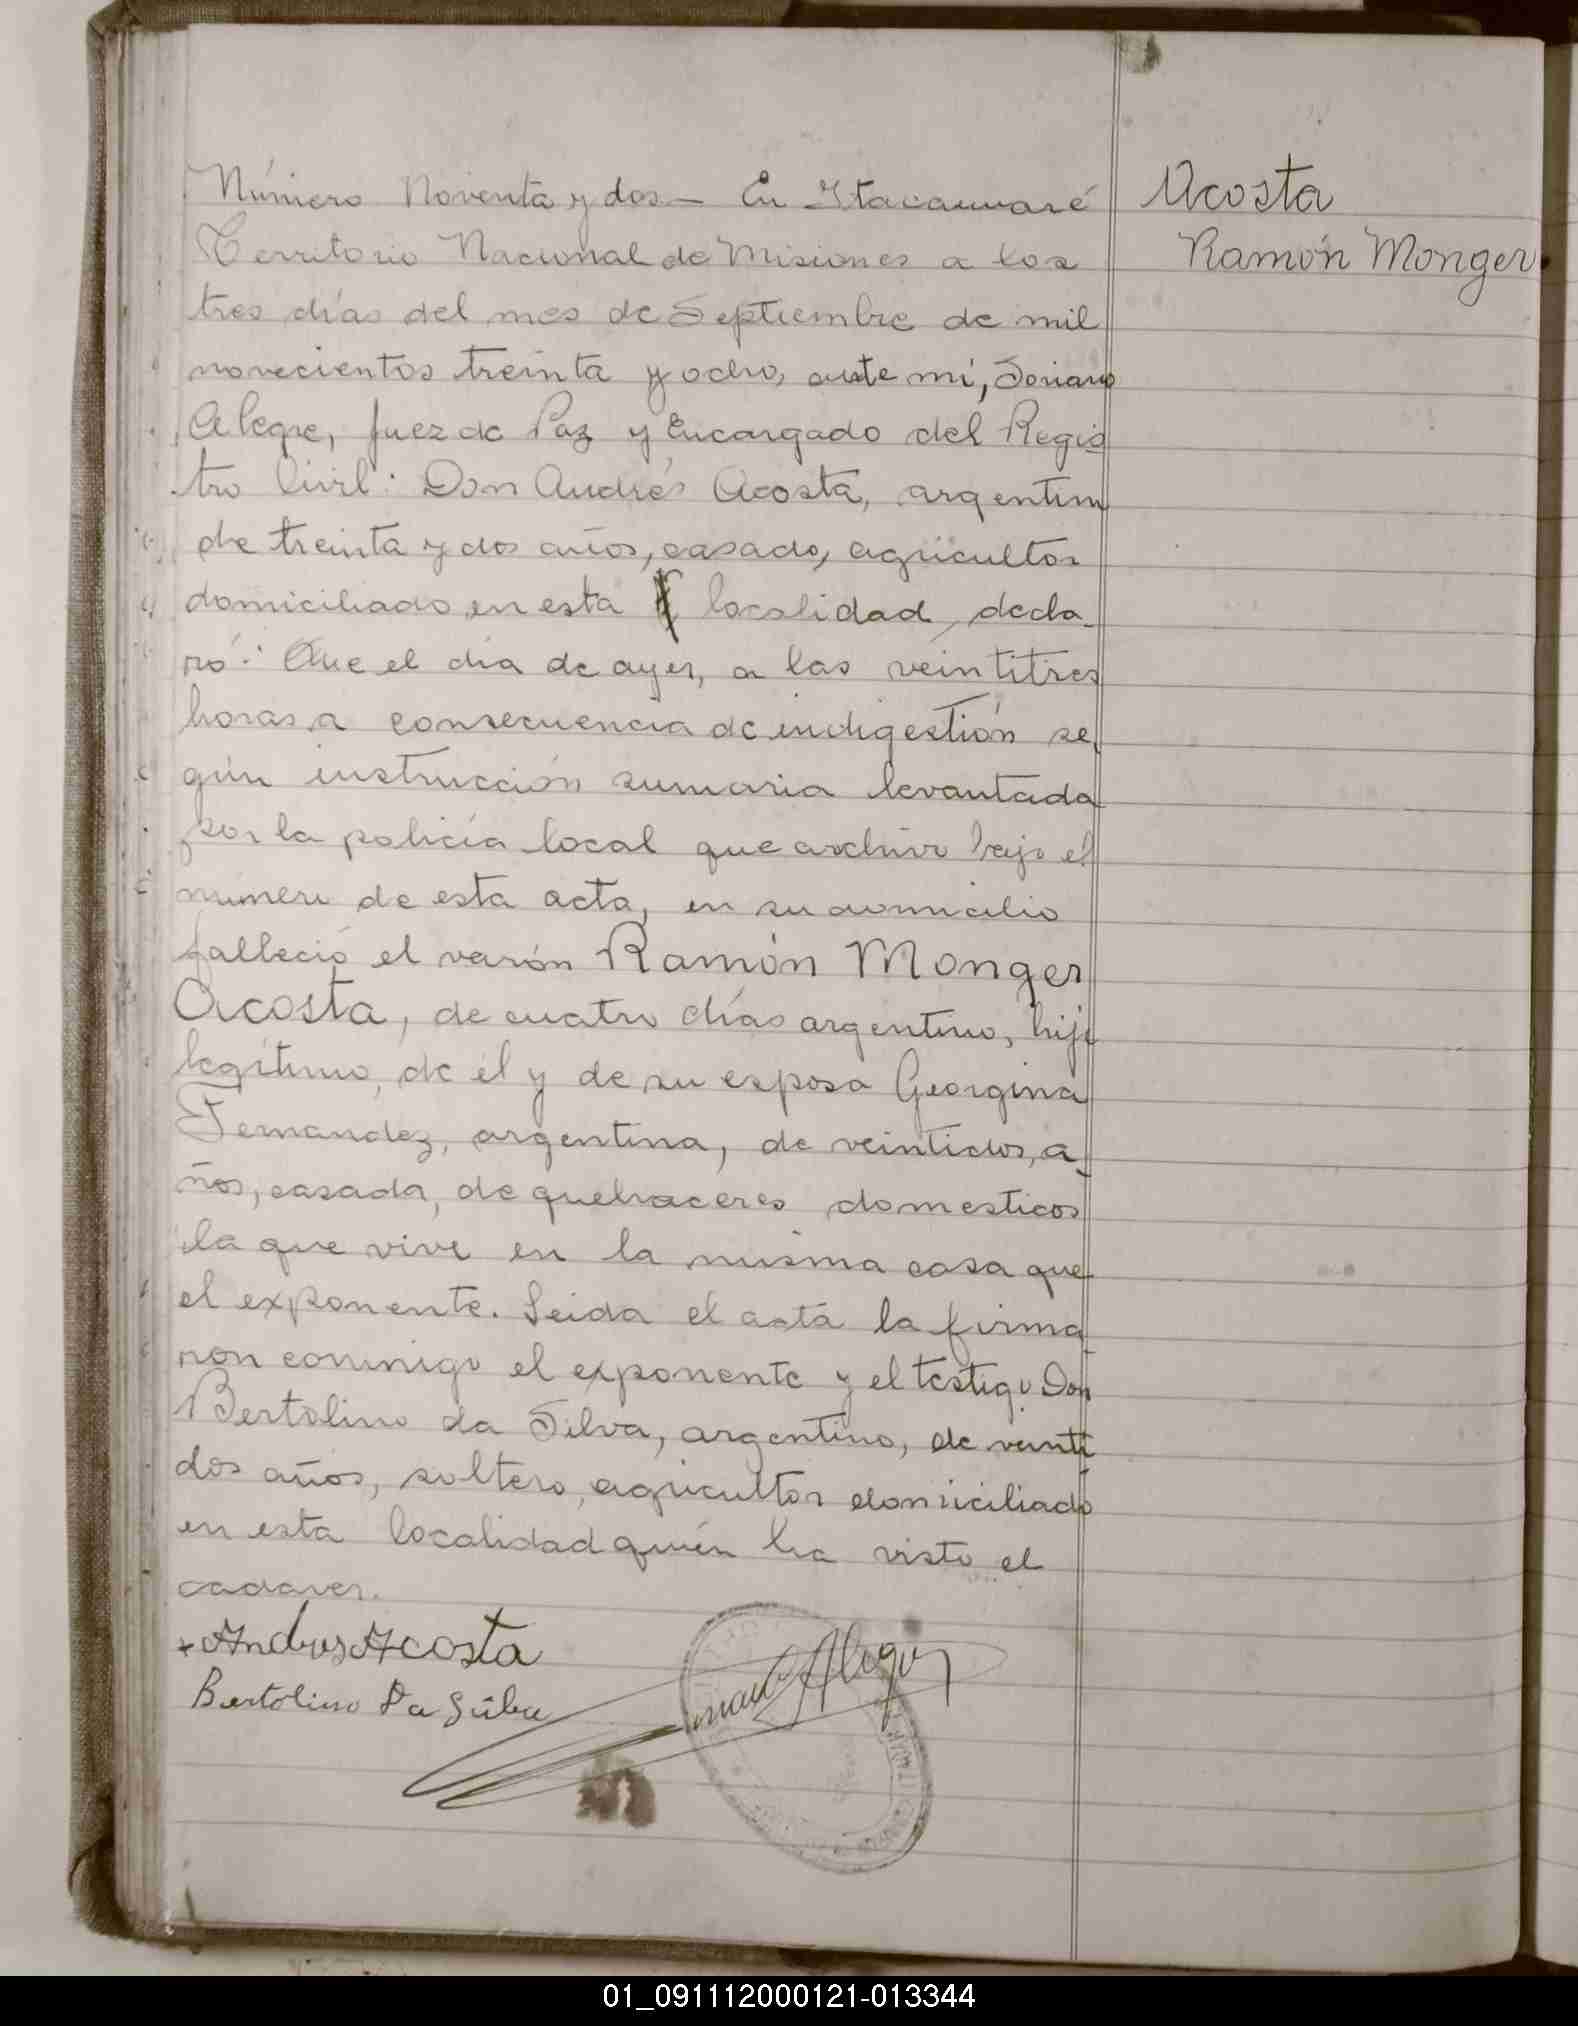 Número Noventa y dos — En Itacaruaré
Territorio Nacional de Misiones a los
tres días del mes de Septiembre de mil
novecientos treinta y ocho, ante mí, Soriano
Alegre, Juez de Paz y Encargado del Regis
tro Civil: Don Andrés Acosta, argentino
de treinta y dos años, casado, agricultor
domiciliado en esta localidad, decla-
ró: Que el día de ayer, a las veintitres
horas a consecuencia de indigestión se
gún instrucción sumaria levantada
por la policía local que archivo bajo el
número de esta acta, en su domicilio
falleció el varón Ramón Monger
Acosta, de cuatro días argentino, hijo
legítimo, de él y de su esposa Georgina
Fernandez, argentina, de veintidos, a-
ños, casada, de quehaceres domesticos
la que vive en la misma casa que
el exponente. Leida el acta la firma
ron conmigo el exponente y el testigo Don
Bertolino da Silva, argentino, de veinti
dos años, soltero, agricultor domiciliado
en esta localidad quién ha visto el
cadaver.
Andres Acosta
Bertolino Da Silva
Alegre
Acosta
Ramón Monger
01_091112000121-013344